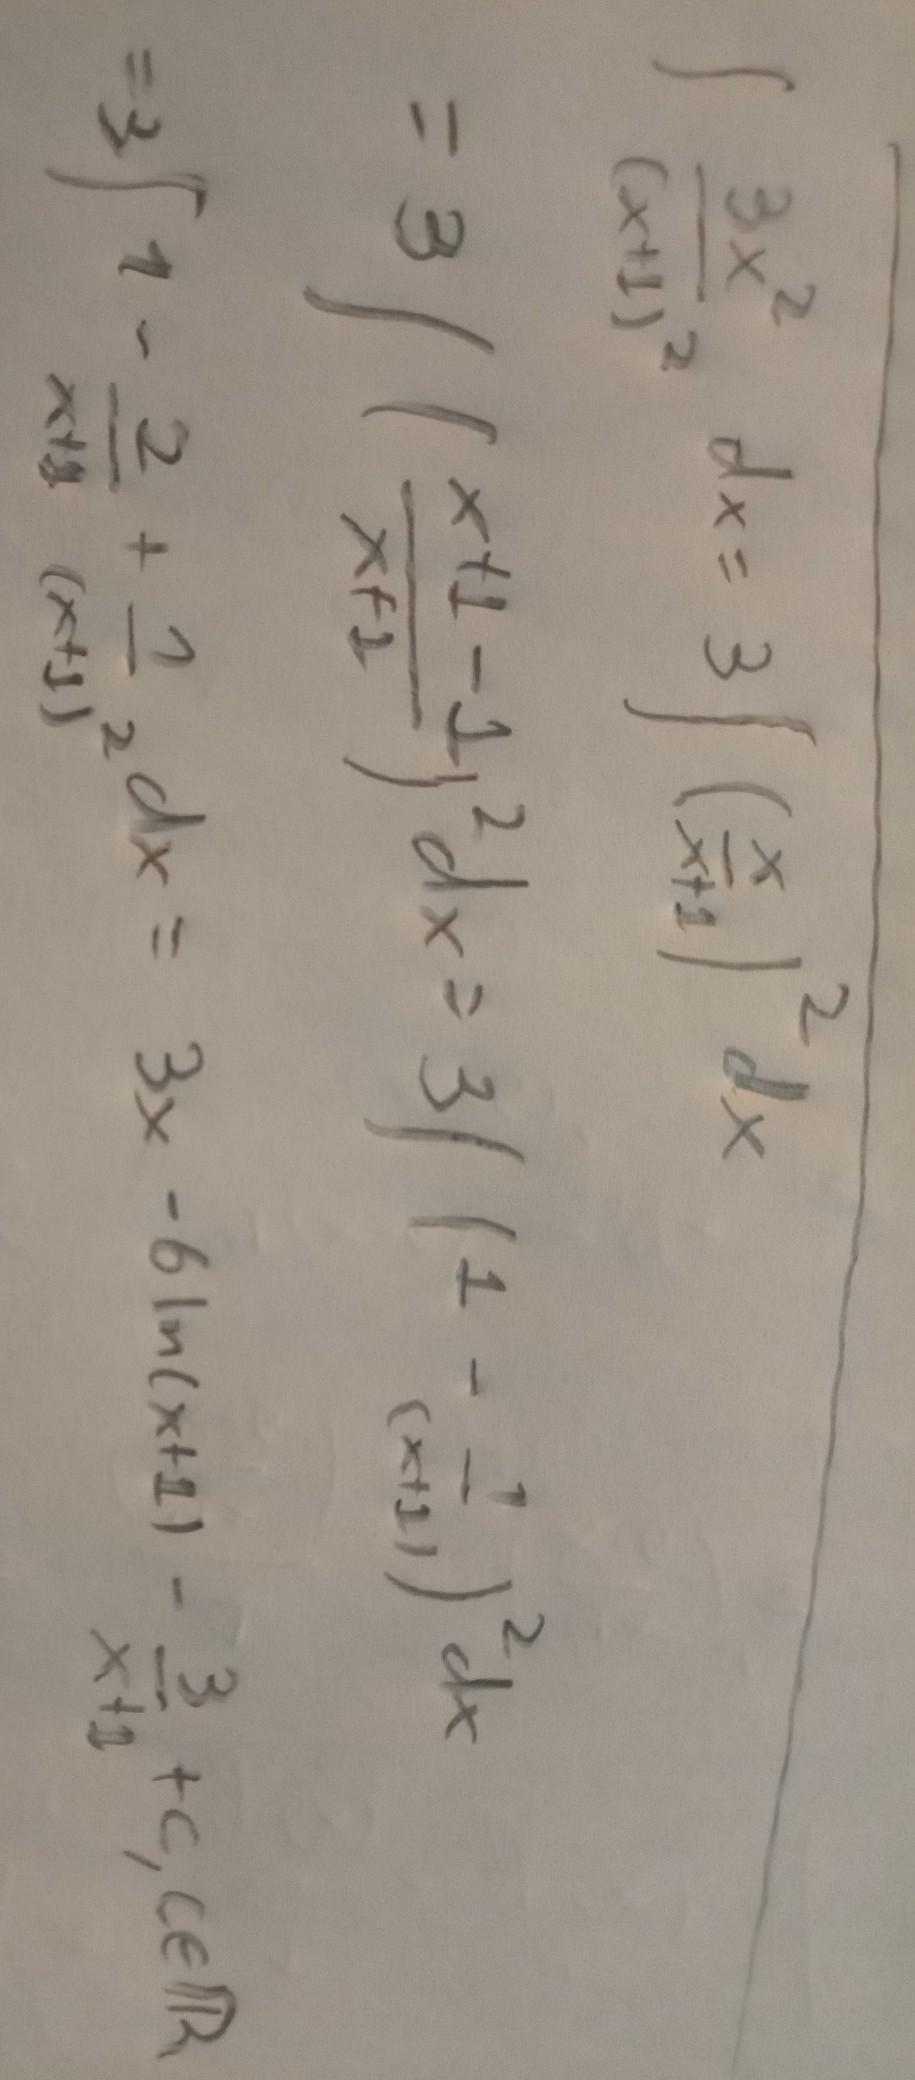 ∫ 3x²/(x+1)² dx = 3∫(x/x+1)² dx
= 3∫(x+1-1/x+1)² dx = 3∫(1 - 1/(x+1))² dx
= 3∫ 1 - 2/x+1 + 1/(x+1)² dx = 3x - 6ln(x+1) - 3/x+1 + c, c∈ℝ